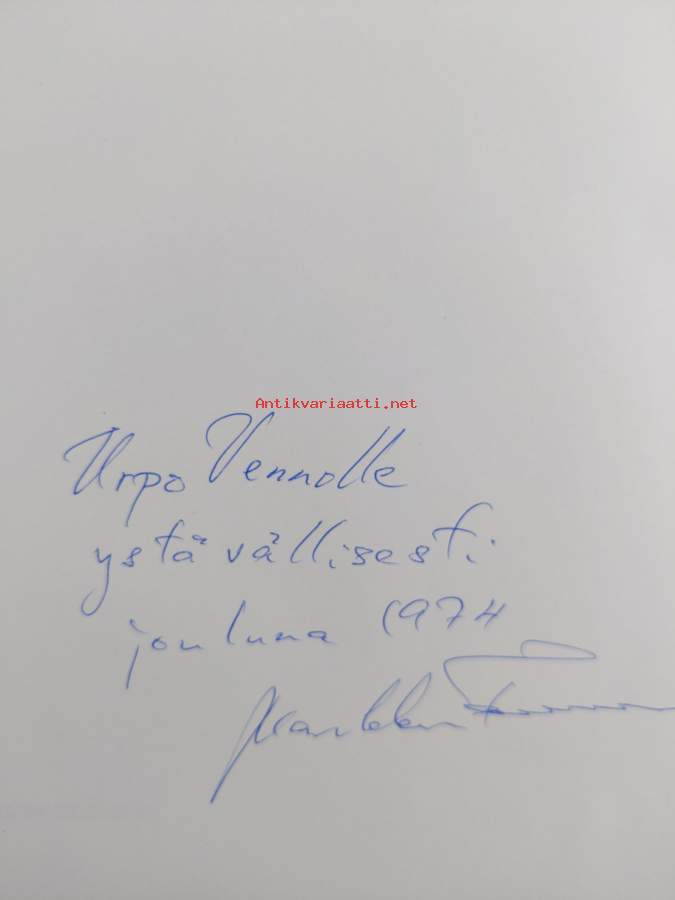 Antikvariaatti.net
Urpo Vennolle
ystävällisesti
jouluna 1974
Markku